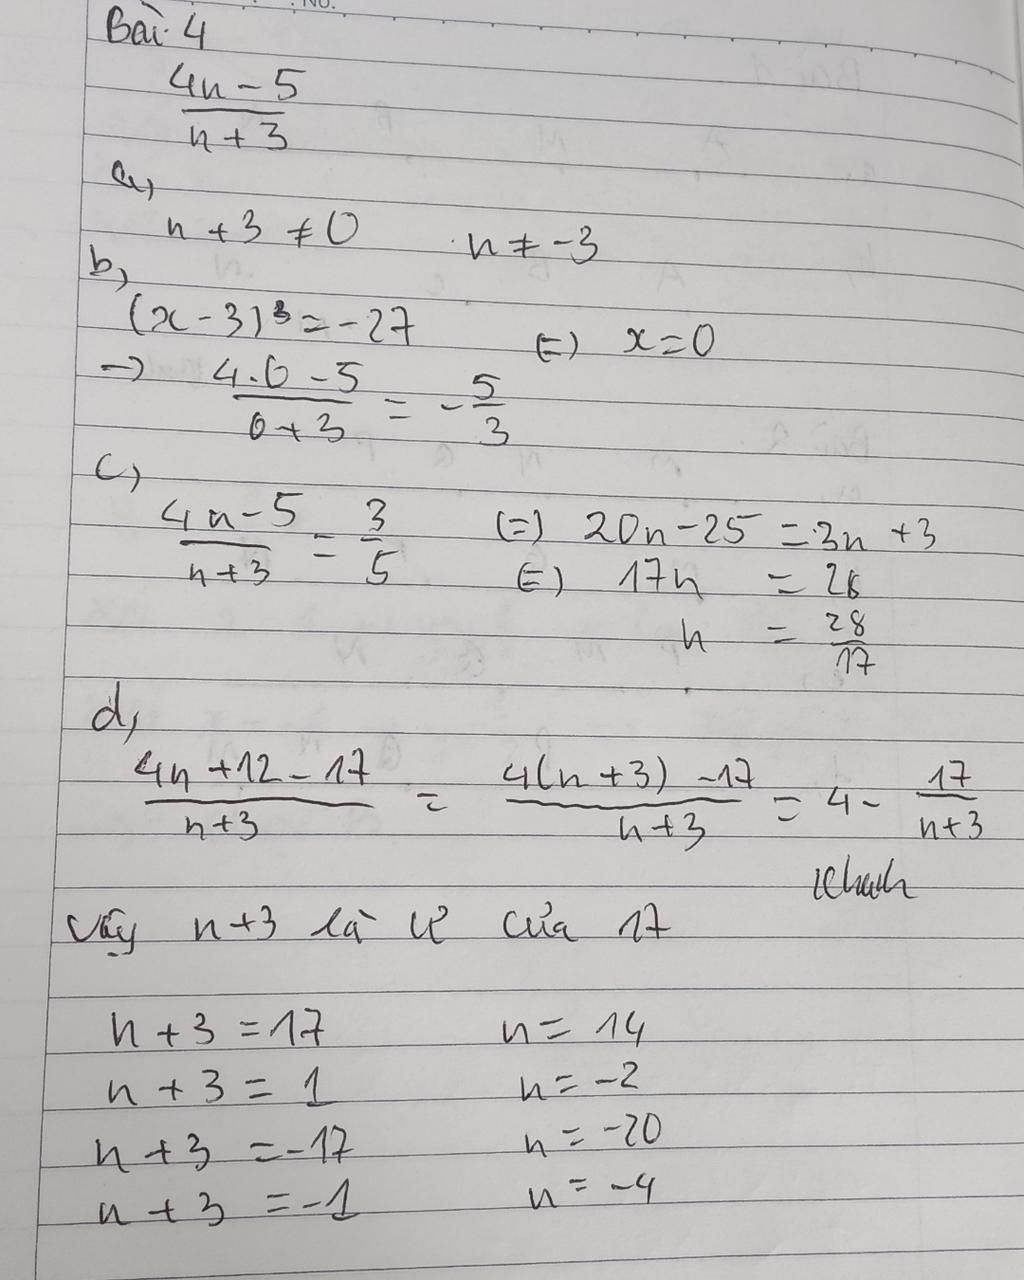 Bài 4
4n - 5 / n + 3
a,
n + 3 ≠ 0 n ≠ -3
b,
(x - 3)³ = -27 (=) x = 0
-> 4.0 - 5 / 0 + 3 = - 5/3
c,
4n - 5 / n + 3 = 3/5 (=) 20n - 25 = 3n + 3
(=) 17n = 28
n = 28/17
d,
4n + 12 - 17 / n + 3 = 4(n + 3) - 17 / n + 3 = 4 - 17 / n + 3
Vậy n + 3 là ư của 17
n + 3 = 17 n = 14
n + 3 = 1 n = -2
n + 3 = -17 n = -20
n + 3 = -1 n = -4